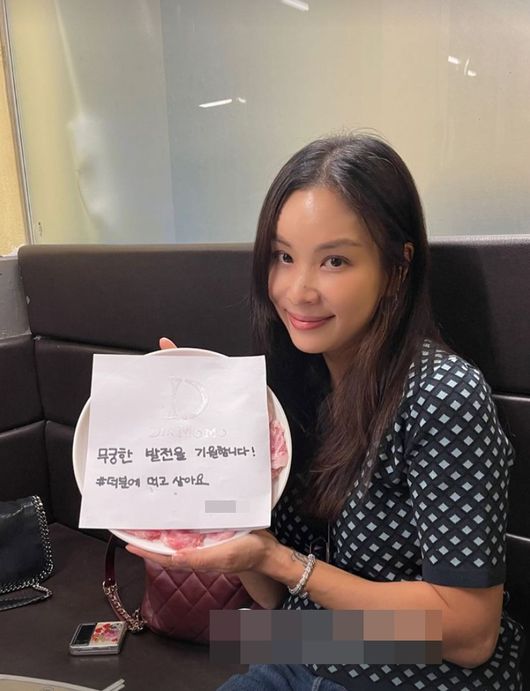 D
DIAMOMO
무궁한 발전을 기원합니다!
#덕분에 먹고 살아요